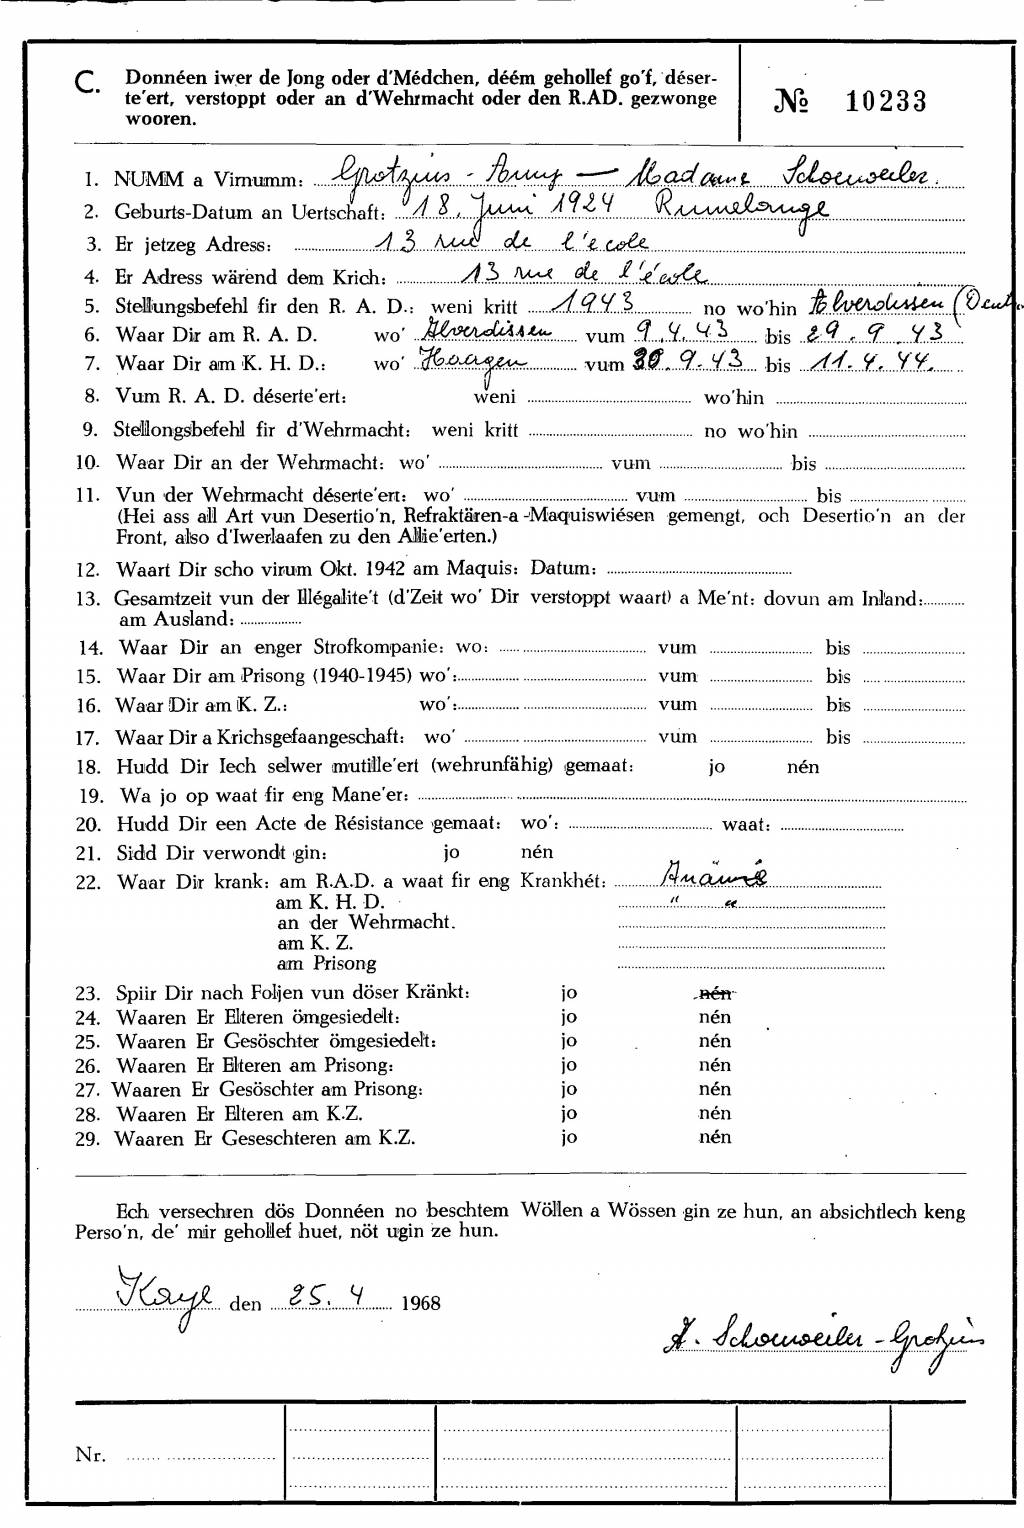 C. Donnéen iwer de Jong oder d'Médchen, déém gehollef go'f, déser-
te'ert, verstoppt oder an d'Wehrmacht oder den R.AD. gezwonge
wooren.
№ 10233
1. NUMM a Virnumm: Grotzius - Anny — Madame Schouweiler.
2. Geburts-Datum an Uertschaft: 18. Juni 1924 Rumelange
3. Er jetzeg Adress: 13 rue de l'école
4. Er Adress wärend dem Krich: 13 rue de l'école
5. Stellungsbefehl fir den R. A. D.: weni kritt 1943 no wo'hin Alverdissen
6. Waar Dir am R. A. D. wo' Alverdissen vum 9.4.43 bis 29.9.43
7. Waar Dir am K. H. D.: wo' Haagen vum 30.9.43 bis 11.4.44.
8. Vum R. A. D. déserte'ert: weni wo'hin
9. Stellongsbefehl fir d'Wehrmacht: weni kritt no wo'hin
10. Waar Dir an der Wehrmacht: wo' vum bis
11. Vun der Wehrmacht déserte'ert: wo' vum bis
(Hei ass all Art vun Desertio'n, Refraktären-a-Maquiswiésen gemengt, och Desertio'n an der
Front, also d'Iwerlaafen zu den Allie'erten.)
12. Waart Dir scho virum Okt. 1942 am Maquis: Datum:
13. Gesamtzeit vun der Illégalite't (d'Zeit wo' Dir verstoppt waart) a Me'nt: dovun am Inland:
am Ausland:
14. Waar Dir an enger Strofkompanie: wo: vum bis
15. Waar Dir am Prisong (1940-1945) wo': vum bis
16. Waar Dir am K. Z.: wo': vum bis
17. Waar Dir a Krichsgefaangeschaft: wo' vum bis
18. Hudd Dir Iech selwer mutille'ert (wehrunfähig) gemaat: jo nén
19. Wa jo op waat fir eng Mane'er:
20. Hudd Dir een Acte de Résistance gemaat: wo': waat:
21. Sidd Dir verwondt gin: jo nén
22. Waar Dir krank: am R.A.D. a waat fir eng Krankhét: Anämie
am K. H. D. " "
an der Wehrmacht.
am K. Z.
am Prisong
23. Spiir Dir nach Foljen vun döser Kränkt: jo nén
24. Waaren Er Elteren ömgesiedelt: jo nén
25. Waaren Er Gesöschter ömgesiedelt: jo nén
26. Waaren Er Elteren am Prisong: jo nén
27. Waaren Er Gesöschter am Prisong: jo nén
28. Waaren Er Elteren am K.Z. jo nén
29. Waaren Er Geseschteren am K.Z. jo nén
Ech versechren dös Donnéen no beschtem Wöllen a Wössen gin ze hun, an absichtlech keng
Perso'n, de' mir gehollef huet, nöt ugin ze hun.
Kayl den 25.4 1968
A. Schouweiler-Grotzius
Nr.